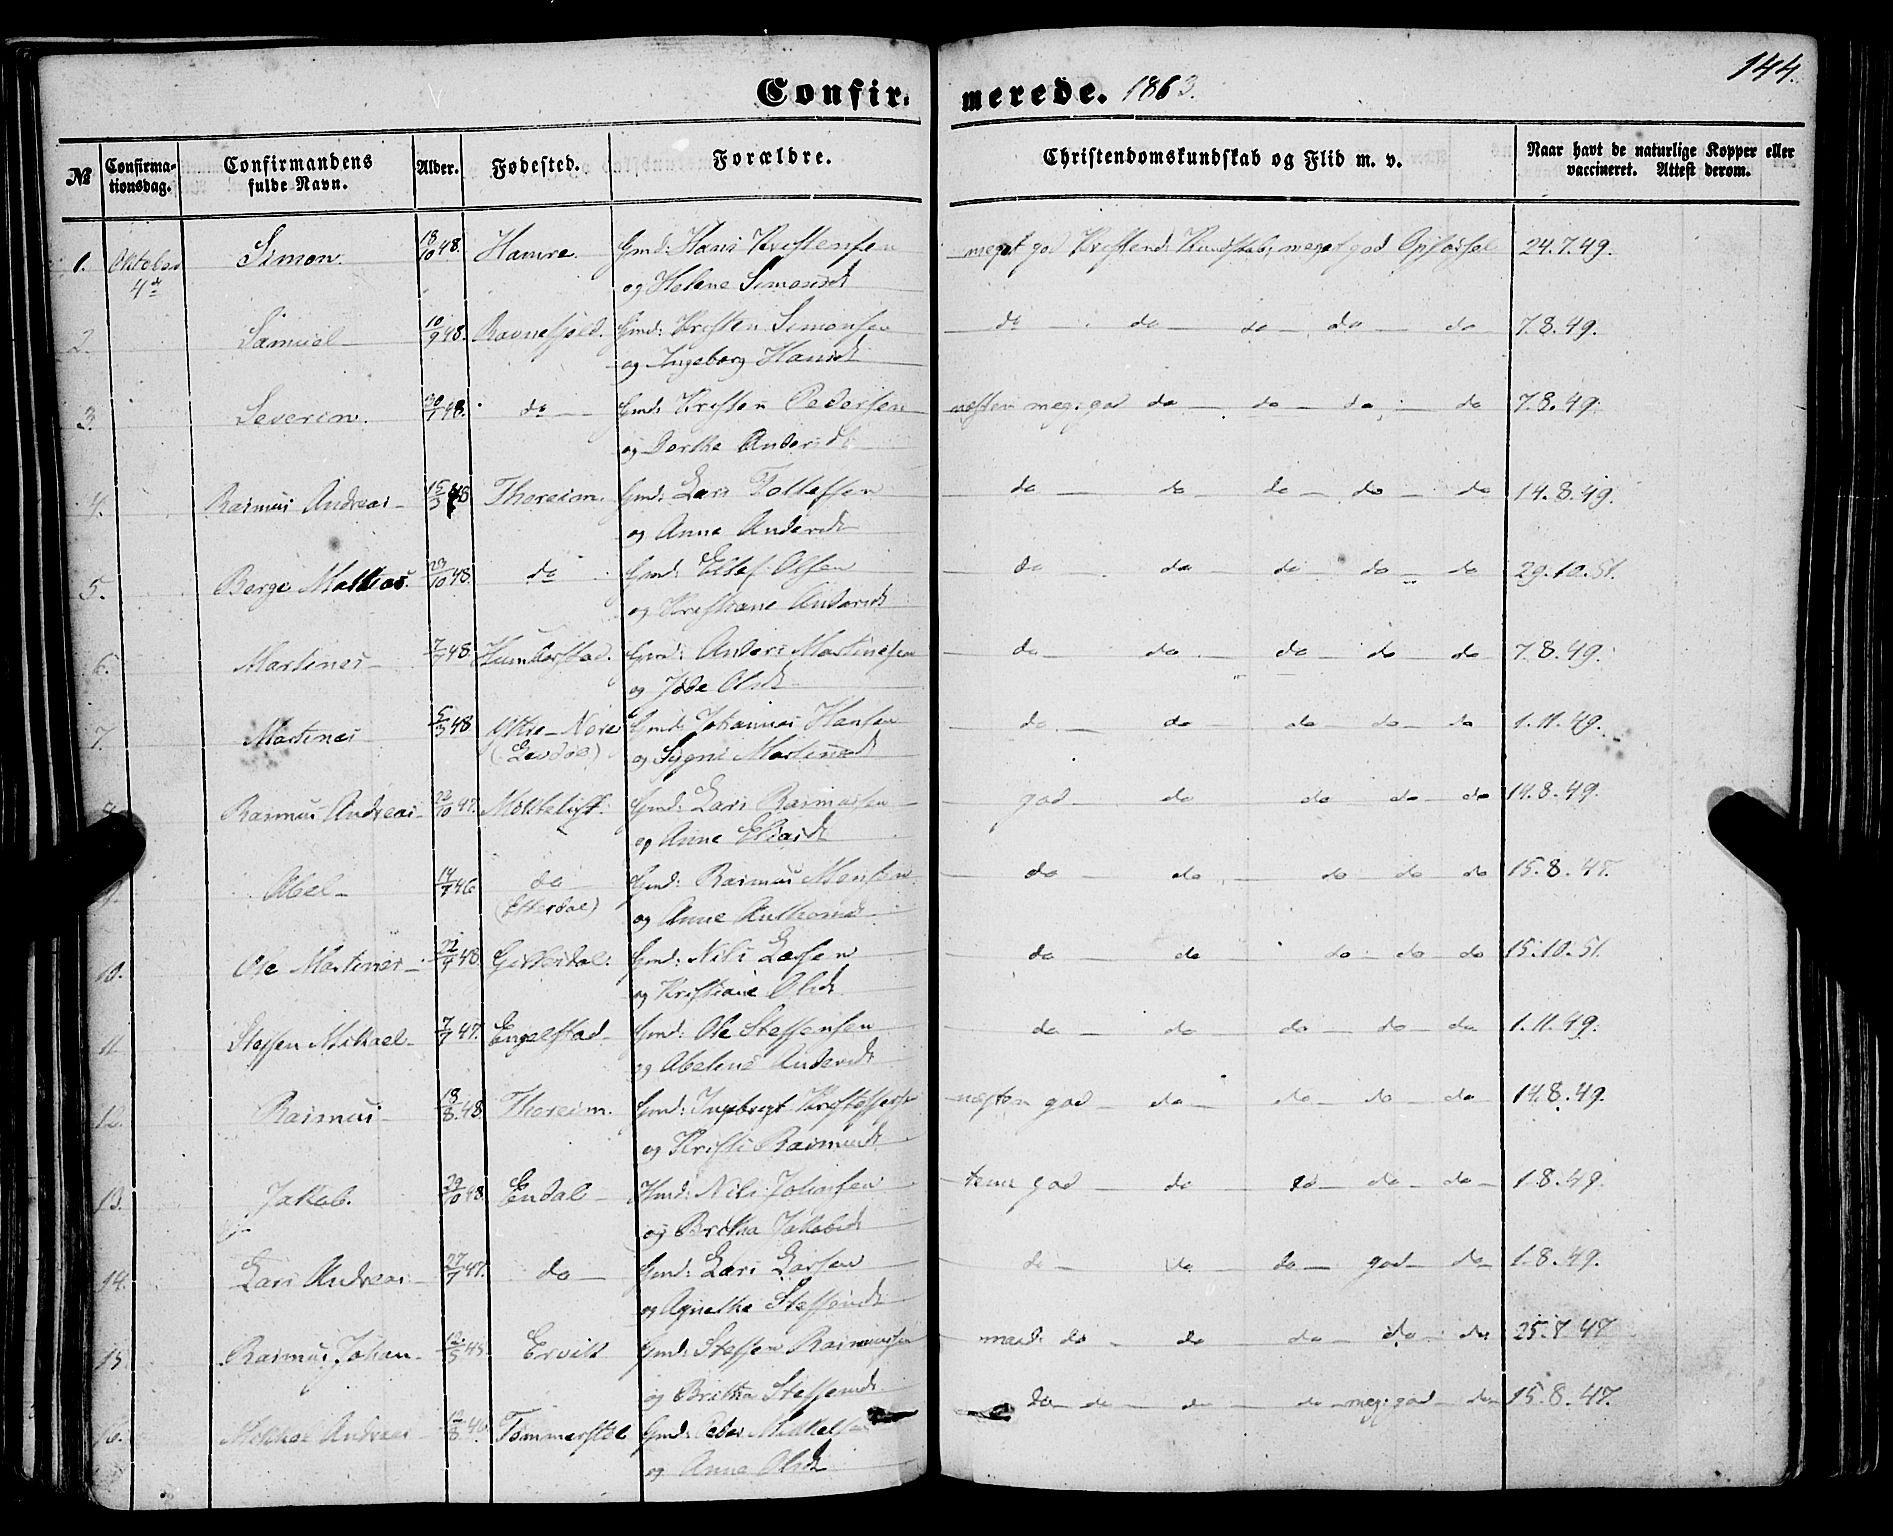 144.
Confirmerede. 1863.
№ Confirmationsdag. Confirmandens fulde Navn. Alder. Fødested. Forældre. Christendomskundskab og Flid m. v. Naar havt de naturlige Kopper eller vaccineret. Attest derom.
1. Oktober Simon. 18/10 48. Hamre. Gmd: Hans Kristensen meget god Kristend: Kundskab, meget god Opførsel 24.7.49.
4de og Helene Simonsdt
2. Samuel 10/9 48. Ravnefjeld. Gmd: Kristen Simonsen do do do do do 7.8.49.
og Ingeborg Hansdt
3. Severin. 30/7 48. do Gmd: Kristen Pedersen næsten meg: god do do do do 7.8.49.
og Dorthe Andersdt
4. Rasmus Andreas 15/3 48 Thoreim. Gmd: Lars Tollefsen do do do do do 14.8.49.
og Anne Andersdt
5. Berge Mathias. 23/10 48. do Gmd: Ellef Olsen do do do do do 29.10.51.
og Kristiane Andersdt
6. Martines 7/7 48 Humberstad. Gmd: Anders Martinesen do do do do do 7.8.49.
og Olsdt
7. Martines 5/3 48 Yttre-Nore Gmd: Johannes Hansen do do do do do 1.11.49.
(Levdal) og Sygni Martinsdt
8. Rasmus Andreas 22/10 47. Mokkelist. Gmd: Lars Rasmussen god do do do do 14.8.49.
og Anne Eliasdt
9. Abel 14/7 46. do Gmd: Rasmus Monsen do do do do do 15.8.47.
(Etterdal) og Anne Anthonsdt
10. Ole Martines 22/7 48. Gmd: Nils Larsen do do do do do 15.10.51.
og Kristiane Olsdt
11. Steffen Mikael 7/7 47. Engelstad Gmd: Ole Steffensen do do do do do 1.11.49.
og Abelone Andersdt
12. Rasmus 18/8 48. Thoreim. Gmd: Ingebregt Kristoffersen næsten god do do do do 14.8.49.
og Kristi Rasmusdt
13. Jakob. 29/10 48. Endal Hmd: Nils Johansen temm god do do do do 1.8.49.
og Britha Jakobsdt
14. Lars Andreas 27/7 47. do Gmd: Lars Larsen do do do god do 1.8.49.
og Agnethe Steffensdt
15. Rasmus Johan 12/5 45. Ervik Gmd: Steffen Rasmussen maad: do do do do do 25.7.47
og Britha Steffensdt
16. Andreas 12/8 46. Tommerstøl Gmd: Peder Mikkelsen do do do do meg: god do 15.8.47.
og Anne Olsdt